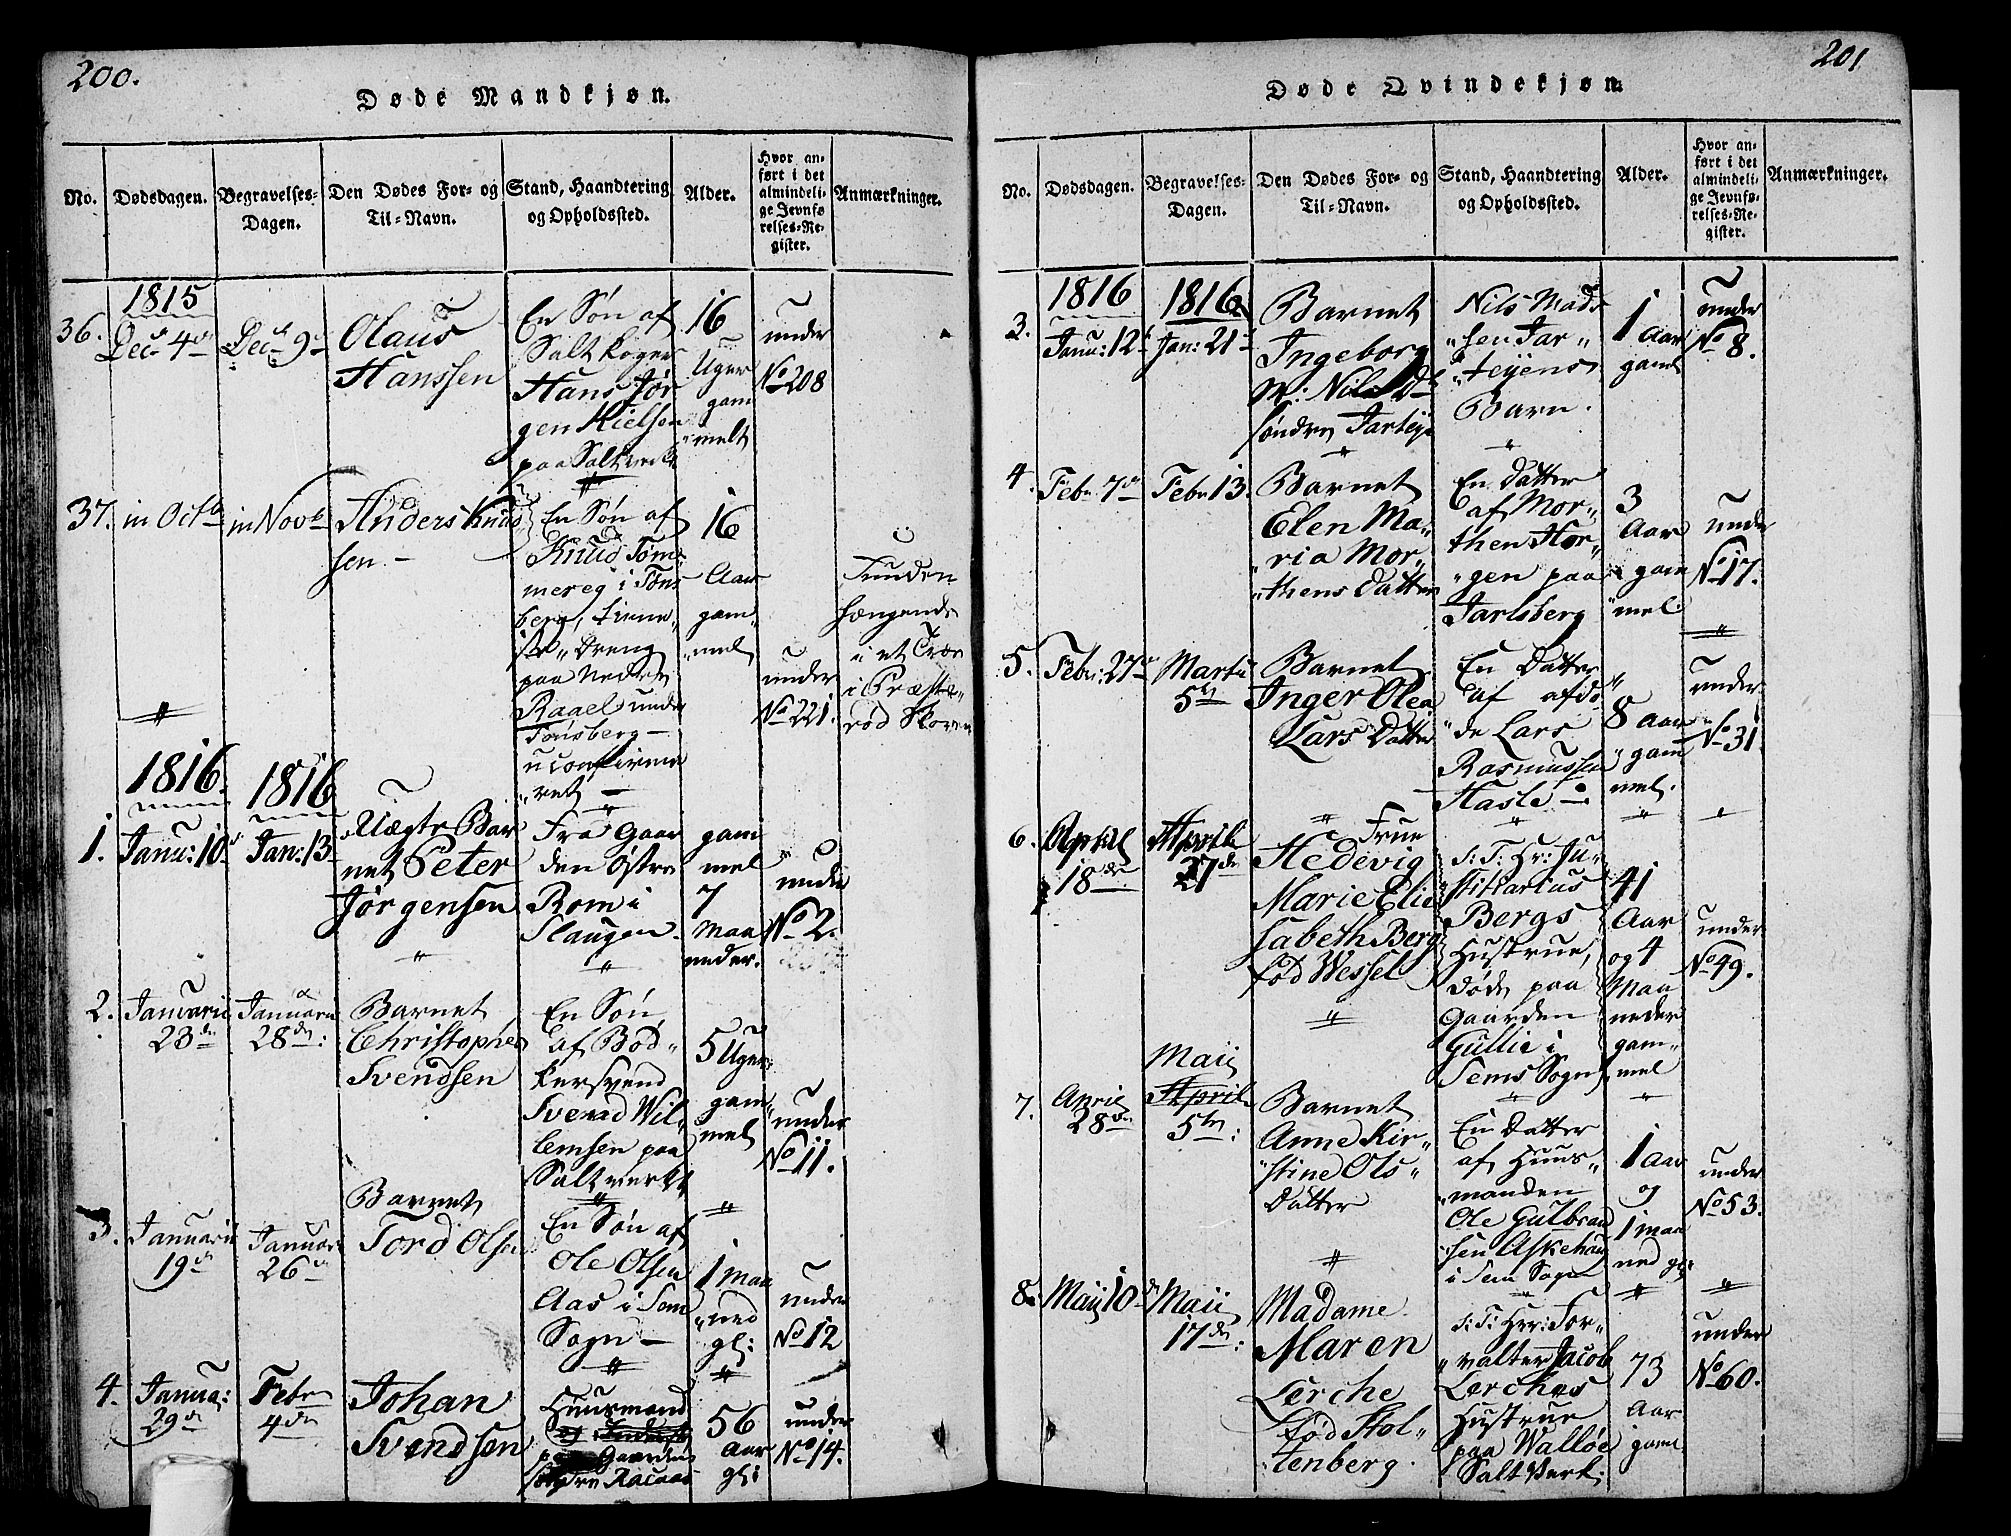 200.
Døde Mandkjøn.
No.
Dødsdagen.
Begravelses-
Dagen.
Den Dødes For- og
Til-Navn.
Stand, Haandtering
og Opholdssted.
Alder.
Hvor an-
ført i det
almindeli-
ge Jevnfø
relses-Re-
gister.
Anmærkninger.
1815
36.
Decr 4de
Decr 9de
Olaus
Hanssen
En Søn af
Saltkoger
Hans Jør
gen Nielsen
paa Saltverket
16
Uger
gam
melt
under
No 208
37.
in Octb
in Novb
Anders Knud
sen.
En Søn af
Knud Tøm
mereg i Tøns
berg, tiene
Dreng
paa Nedre
Raael under
Tønsberg
uconfirme
ret
16
Aar
gam
mel
under
No 221.
Funden
hængende
i et Træe
i Præste
rød Skoven
1816.
1816
1.
Janu: 10de
Jan: 13
Uægte Bar
net Peter
Jørgensen
Fra Gaar
den Østre
Rom i
Slaugen
gam
mel
7
Maa
neder.
under
No 2.
2.
Januarii
23de
Januarii
28de:
Barnet
Christopher
Svendsen
En Søn
af Bød
kersvend
Svend Wil
lemsen paa
Saltverket
5 Uger
gam
mel
under
No 11.
3.
Januarii
19de
Januari
26de
Barnet
Tord Olsen
En Søn af
Ole Olsen
Aas i Sem
Sogn
1 Maa
ned
gl:
under
No 12
4.
Janua:
29de
Febr
4de
Johan
Svendsen
Huusmand
paa Gaarden
søndre Racaas
56
Aar
gl:
under
No 14.
201
Døde Qvindekjøn.
No.
Dødsdagen.
Begravelses-
Dagen.
Den Dødes For- og
Til-Navn.
Stand, Haandtering
og Opholdssted.
Alder.
Hvor an-
ført i det
almindeli-
ge Jevnfø-
relses-Re-
gister.
Anmærkninger.
1816
1816.
3.
Janu: 12te
Jan: 21de
Barnet
Ingeborg
M: Nils Dr
søndre Jarteye
Nils Mad
sen Jar
teyens
Barn.
1 Aar
gaml
under
No 8.
4.
Febr 7de
Febr 13.
Barnet
Elen Ma
ria Mor
thens Datter
En Datter
af Mor
then Hor
gen paa
Jarlsberg
3
Aar
gam
mel:
under
No 17.
5.
Febr: 27de
Martii
5te
Barnet
Inger Olea
Lars Datter
En Datter
af afdø
de Lars
Rasmussen
Hasle
8 Aar
gam
mel.
under
No 31
6.
April
18de
April
27de
Frue
Hedevig
Marie Elie
sabeth Berg
fød Wessel
S: T: Hr: Ju
stitiarius
Bergs
Hustrue,
døde paa
Gaarden
Gullie i
Sems Sogn
41
Aar
og 4
Maa
neder
gam
mel
under
No 49.
7.
April
28de
Maii
April
5te:
Barnet
Anne Kir
stine Ols
Datter
En Datter
af Huus
manden
Ole Gulbrand
sen Askehau
i Sem Sogn
1 Aar
og
1 maa
ned gl:
under
No 53.
8.
Maii 10de
Maii
17de:
Madame
Maren
Lerche
fød Stol
tenberg.
S: T: Hrr: For
valter Jacob
Lerches
Hustrue
paa Walløe
Salt Verk.
73
Aar
gaml
under
No 60.